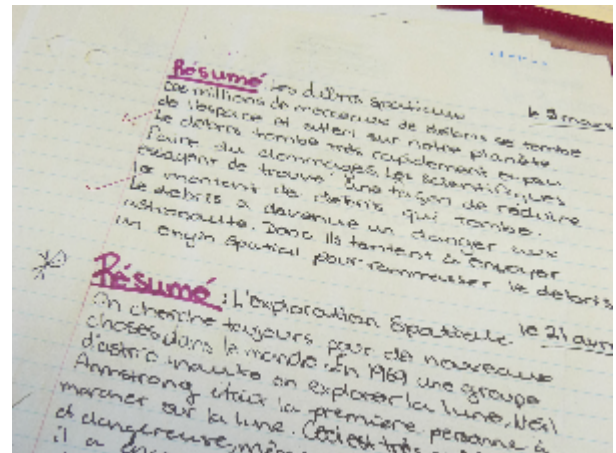 Résumé: Les débris spatiaux
le 3 mars
Des millions de morceaux de débris se tombe
de l'espace et atteri sur notre planète.
Le débris tombe très rapidement et peu
faire du dommages. Les scientifiques
essayent de trouve une façon de réduire
le montant de débris qui tombe.
Le débris a devenue un danger aux
astronaute. Donc ils tentent à envoyer
un engin spatial pour rammasser le débris
Résumé: L'exploration Spatiale
le 21 avri
On cherche toujours pour de nouveaux
choses dans le monde. En 1969 une groupe
d'astronaute on explorer la lune. Neil
Armstrong était la première personne à
marcher sur la lune. Ceci est très
et dangereuse,
il a